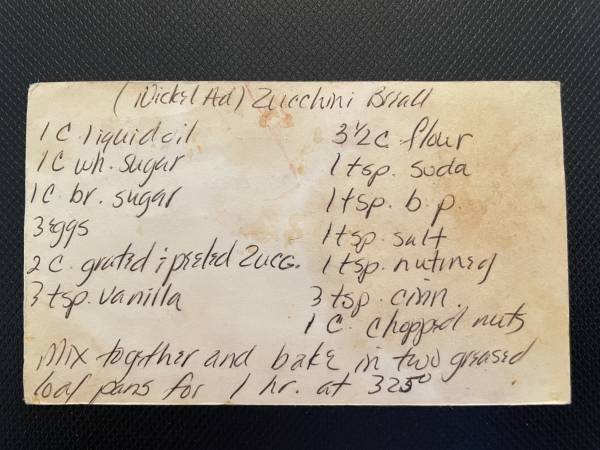 (Nickel Ad) Zucchini Bread
1 C. liquid oil
1 C wh. sugar
1 C. br. sugar
3 eggs
2 C. grated & peeled Zucc.
3 tsp. vanilla
3 1/2 C. flour
1 tsp. soda
1 tsp. b.p.
1 tsp. salt
1 tsp. nutmeg
3 tsp. cinn.
1 C. chopped nuts
Mix together and bake in two greased
loaf pans for 1 hr. at 325°